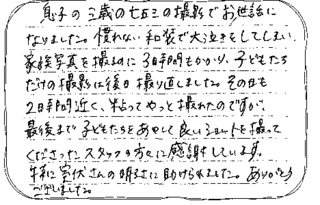 息子の三歳の七五三の撮影でお世話に
なりました。慣れない和装で大泣きをしてしまい、
家族写真を撮るのに3時間もかかり、子どもたち
だけの撮影は後日撮り直しました。その日も
2時間近く、粘ってやっと撮れたのですが、
最後まで子どもたちをあやして良いショットを撮って
くださったスタッフの方々に感謝しています。
特に室伏さんの明るさに助けられました。ありがとう
ございました。